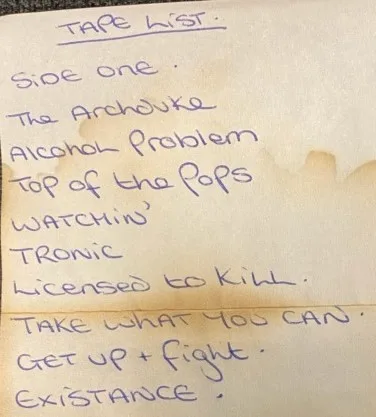 TAPE LIST.
SIDE ONE.
The Archduke
Alcohol Problem
Top of the Pops
WATCHIN'
TRONIC
Licensed to Kill.
TAKE WHAT YOU CAN.
GET UP + fight.
EXISTANCE.